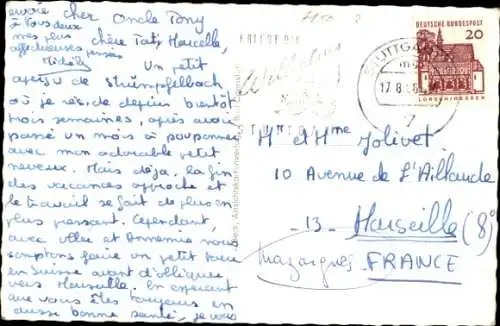 encore cher Oncle Tony
à tous deux
mes plus
affectueuses pensées
chère Tati Marcelle,
Un petit
aperçu de Strümpfelbach
où je réside depuis bientôt
trois semaines, après avoir
passé un mois à pouponner
avec mon adorable petit
neveux. Mais déjà, la fin
des vacances approche et
le travail se fait de plus en
plus pressant. Cependant,
avec Ulle et Annemie nous
comptons faire un petit tour
en Suisse avant d'obliquer
vers Marseille. En espérant
que vous êtes toujours en
aussi bonne santé, je vous
DEUTSCHE BUNDESPOST
20
LORSCH/HESSEN
STUTTGART
17.8.
7
M et Mme Jolivet
10 Avenue de L'Aillaude
-13- Marseille (8)
Mazargues
FRANCE